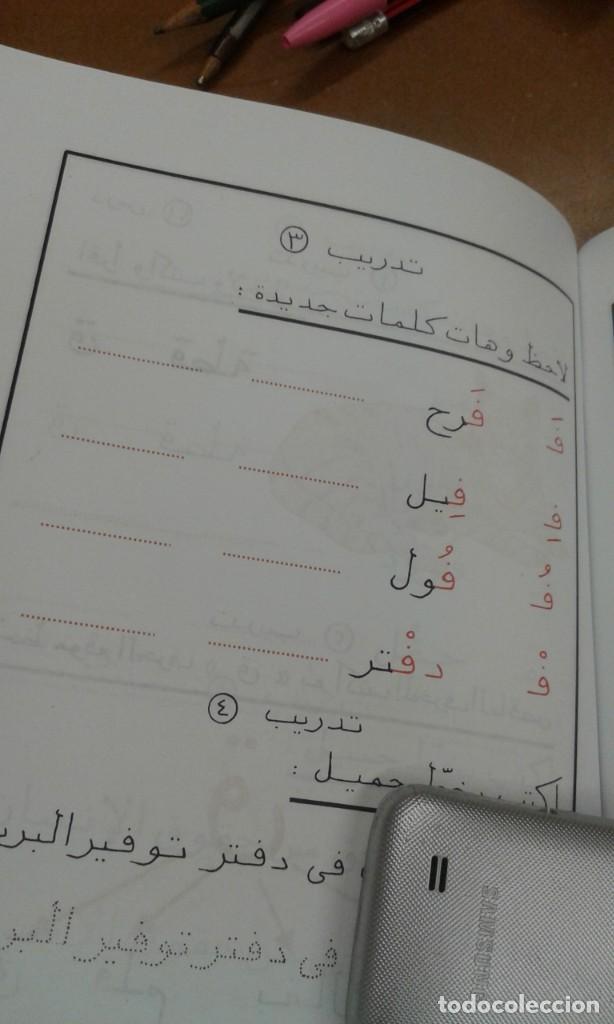 تدريب ٣
لاحظ وهات كلمات جديدة :
فَا فَرح
فِا فِيل
فُا فُول
فْا دفْتر
تدريب ٤
اكتب بخط جميل :
فى دفتر توفير البر
فى دفتر توفير البر
SAMSUNG
todocoleccion